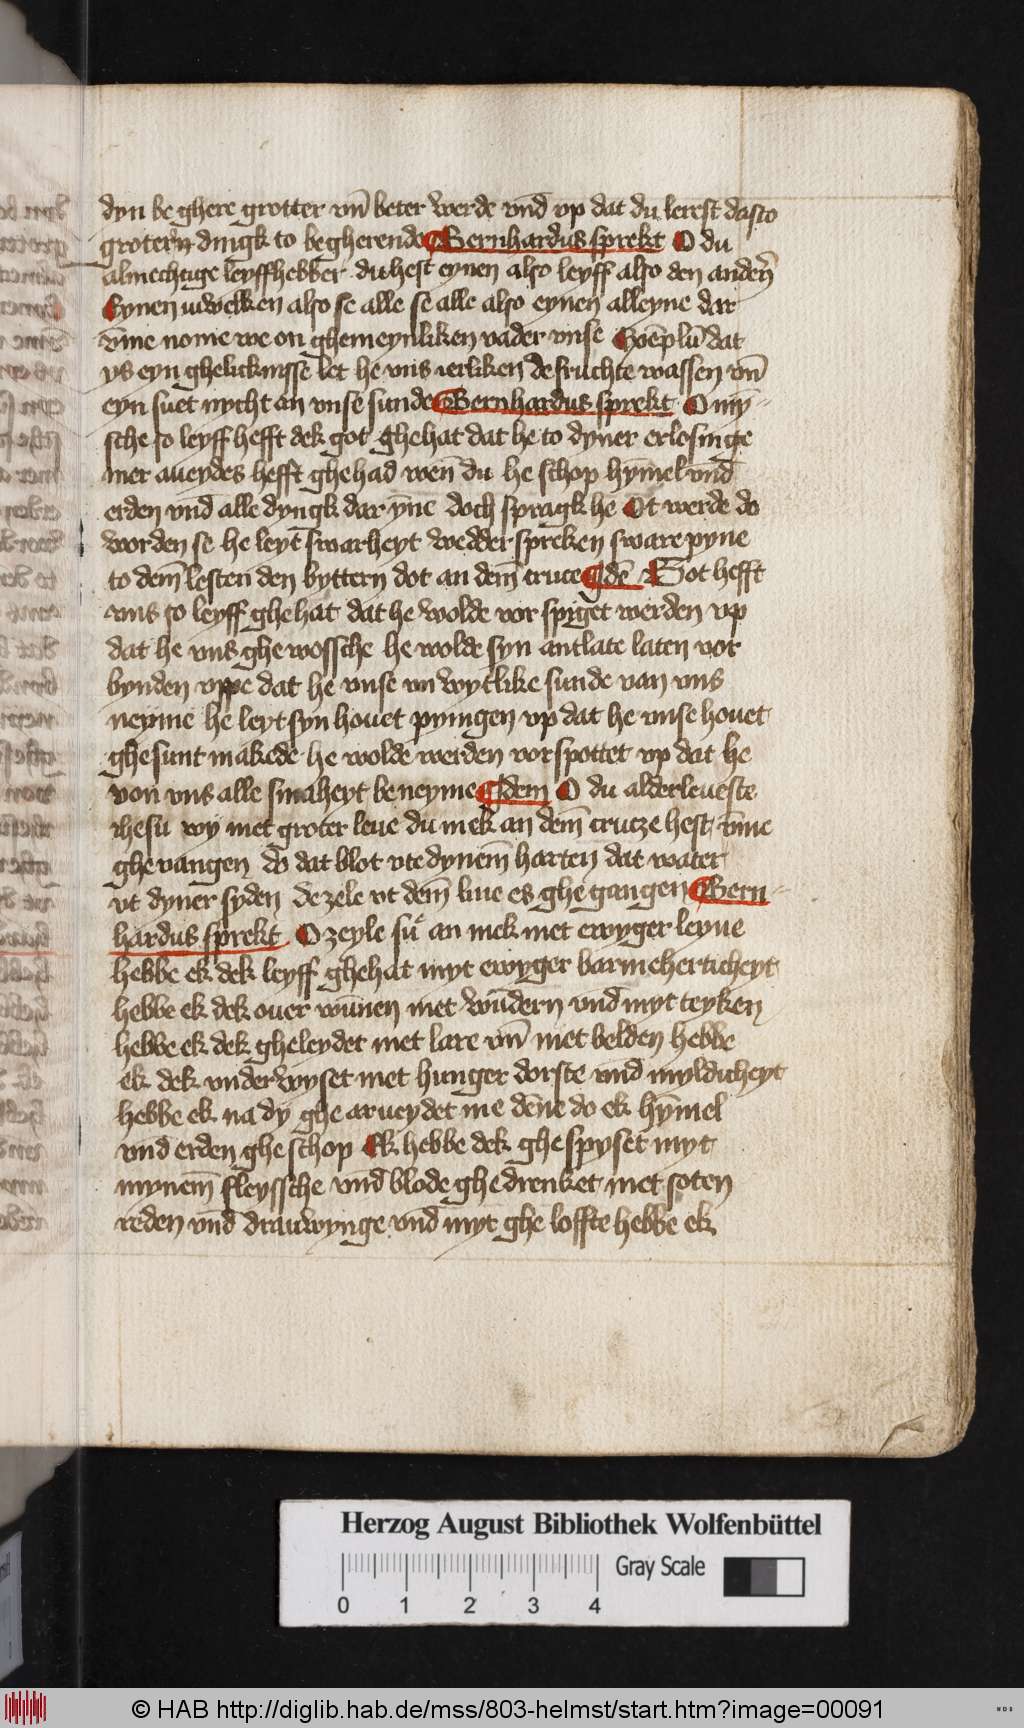 dyn be ghere grotter vn̄ beter werde vnd̄ vp dat du lerest dasto
groter'n dingk to begherende Bernhardus sprekt O du
almechtige leyffhebber du hest eynen also leyff also den andern̄
Eynen iuwelken also se alle se alle also eynen alleyne dar
v̄me nome we on ghemeynliken vader vnse Exēplū dat
ys eyn ghelicknisse let he vns ierliken de fruchte wassen vn̄
eyn suet nycht an vnse sunde Bernhardus sprekt O my-
sche so leyff hefft dek got ghehat dat he to dyner erlosinge
mer arueydes hefft ghehad wen̄ du he schop hȳmel vnd̄
erden vnd̄ alle dyngk dar ȳne doch spragk he Ot werde do
worden se he leyt swarheyt wedderspreken sware pyne
to dem̄ lesten den byttern dot an dem̄ cruce Idē Got hefft
vns so leyff ghehat dat he wolde vor spiget werden vp
dat he vns ghe wossche he wolde syn antlate laten vor
bynden vppe dat he vnse vn wytlike sunde van vns
neyme he leyt syn houet pyingen vp dat he vnse houet
ghesunt makede he wolde werden vorspottet vp dat he
von vns alle smaheyt beneyme Idem O du alderleueste
ihesu wy met groter leue du mek an dem̄ crucze hest v̄me
ghevangen do dat blot vte dynem̄ harten dat water
vt dyner syden de zele vt dem̄ liue es ghe gangen Bern-
hardus sprekt O zeyle su an mek met ewyger leyue
hebbe ek dek leyff ghehat myt ewyger barmeherticheyt
hebbe ek dek ouer wūnen met wūdern vnd̄ myt teyken
hebbe ek dek gheleydet met lare vn̄ met belden hebbe
ek dek vnderwyset met hunger dorste vnd̄ myldicheyt
hebbe ek na dy ghe arueydet me dēne do ek hȳmel
vnd erden gheschop Ek hebbe dek ghe spyset myt
mynem̄ fleyssche vnd̄ blode ghedrenket met soten
reden vnd̄ drauwynge vnd̄ myt ghe loffte hebbe ek
Herzog August Bibliothek Wolfenbüttel
Gray Scale
0 1 2 3 4
© HAB http://diglib.hab.de/mss/803-helmst/start.htm?image=00091